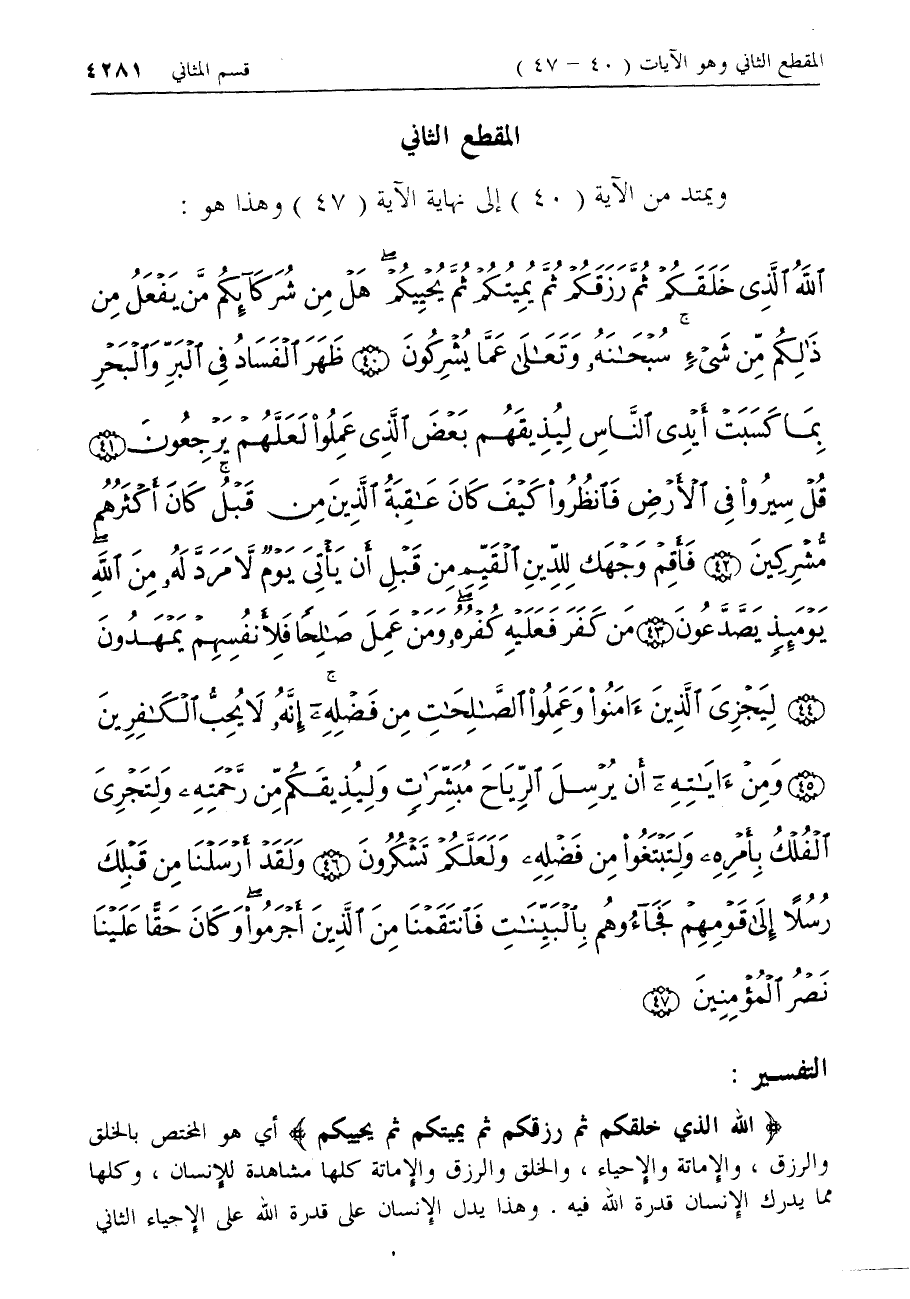 المقطع الثاني وهو الآيات ( ٤٠ - ٤٧ ) قسم المثاني ٤٢٨١
المقطع الثاني
ويمتد من الآية ( ٤٠ ) إلى نهاية الآية ( ٤٧ ) وهذا هو :
ٱللَّهُ ٱلَّذِى خَلَقَكُمْ ثُمَّ رَزَقَكُمْ ثُمَّ يُمِيتُكُمْ ثُمَّ يُحْيِيكُمْ ۖ هَلْ مِن شُرَكَآئِكُم مَّن يَفْعَلُ مِن
ذَٰلِكُم مِّن شَىْءٍ ۚ سُبْحَٰنَهُۥ وَتَعَٰلَىٰ عَمَّا يُشْرِكُونَ ٤٠ ظَهَرَ ٱلْفَسَادُ فِى ٱلْبَرِّ وَٱلْبَحْرِ
بِمَا كَسَبَتْ أَيْدِى ٱلنَّاسِ لِيُذِيقَهُم بَعْضَ ٱلَّذِى عَمِلُوا۟ لَعَلَّهُمْ يَرْجِعُونَ ٤١
قُلْ سِيرُوا۟ فِى ٱلْأَرْضِ فَٱنظُرُوا۟ كَيْفَ كَانَ عَٰقِبَةُ ٱلَّذِينَ مِن قَبْلُ ۚ كَانَ أَكْثَرُهُم
مُّشْرِكِينَ ٤٢ فَأَقِمْ وَجْهَكَ لِلدِّينِ ٱلْقَيِّمِ مِن قَبْلِ أَن يَأْتِىَ يَوْمٌ لَّا مَرَدَّ لَهُۥ مِنَ ٱللَّهِ ۖ
يَوْمَئِذٍ يَصَّدَّعُونَ ٤٣ مَن كَفَرَ فَعَلَيْهِ كُفْرُهُۥ ۖ وَمَنْ عَمِلَ صَٰلِحًا فَلِأَنفُسِهِمْ يَمْهَدُونَ
٤٤ لِيَجْزِىَ ٱلَّذِينَ ءَامَنُوا۟ وَعَمِلُوا۟ ٱلصَّٰلِحَٰتِ مِن فَضْلِهِۦٓ ۚ إِنَّهُۥ لَا يُحِبُّ ٱلْكَٰفِرِينَ
٤٥ وَمِنْ ءَايَٰتِهِۦٓ أَن يُرْسِلَ ٱلرِّيَاحَ مُبَشِّرَٰتٍ وَلِيُذِيقَكُم مِّن رَّحْمَتِهِۦ وَلِتَجْرِىَ
ٱلْفُلْكُ بِأَمْرِهِۦ وَلِتَبْتَغُوا۟ مِن فَضْلِهِۦ وَلَعَلَّكُمْ تَشْكُرُونَ ٤٦ وَلَقَدْ أَرْسَلْنَا مِن قَبْلِكَ
رُسُلًا إِلَىٰ قَوْمِهِمْ فَجَآءُوهُم بِٱلْبَيِّنَٰتِ فَٱنتَقَمْنَا مِنَ ٱلَّذِينَ أَجْرَمُوا۟ ۖ وَكَانَ حَقًّا عَلَيْنَا
نَصْرُ ٱلْمُؤْمِنِينَ ٤٧
التفسير :
﴿ الله الذي خلقكم ثم رزقكم ثم يميتكم ثم يحييكم ﴾ أي هو المختص بالخلق
والرزق ، والإماتة والإحياء ، والخلق والرزق والإماتة كلها مشاهدة للإنسان ، وكلها
مما يدرك الإنسان قدرة الله فيه . وهذا يدل الإنسان على قدرة الله على الإحياء الثاني